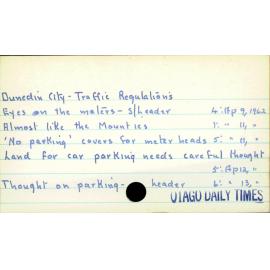 Dunedin City - Traffic Regulations
Eyes on the meters - s/header 4: Ap 9, 1962
Almost like the Mounties 1: " 11, "
'No parking' covers for meter heads 5: " 11, "
Land for car parking needs careful thought
5: Ap 12, "
Thought on parking - header 6: " 13, "
OTAGO DAILY TIMES